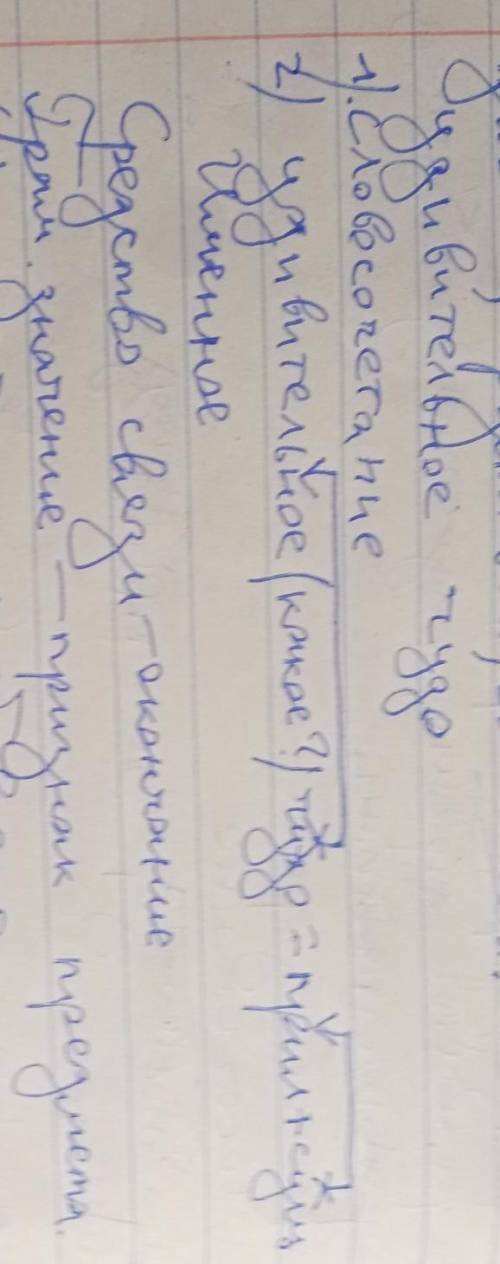 Удивительное чудо
1) Словосочетание
2) удивительное (какое?) чудо = прил + сущ
Именное
Средство связи – окончание
Грам. значение – признак предмета.